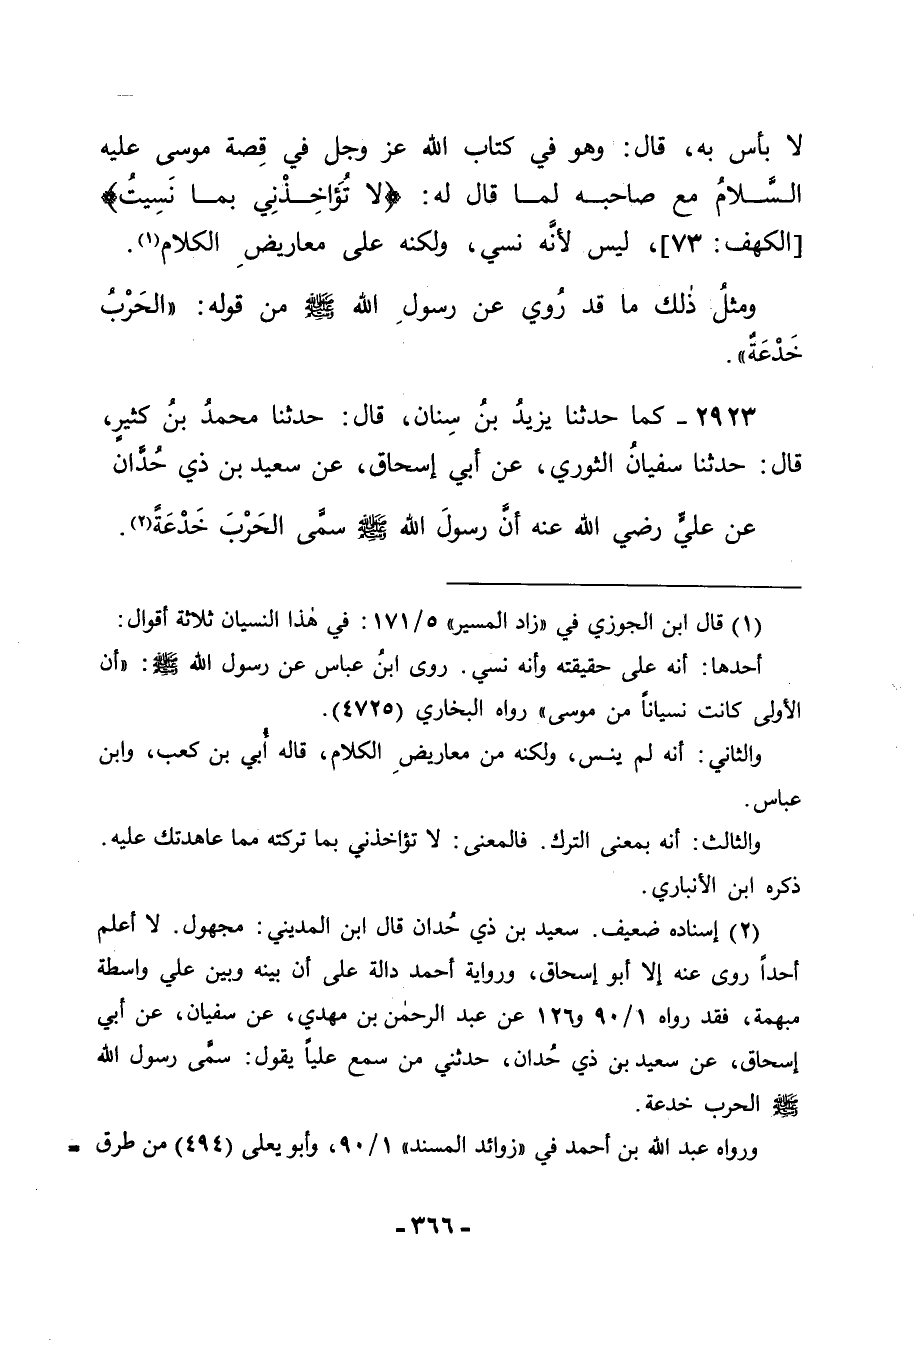 لا بأس به، قال: وهو في كتاب الله عز وجل في قِصة موسى عليه
السَّلامُ مع صاحبه لما قال له: ﴿لا تُؤَاخِذْنِي بما نَسِيتُ﴾
[الكهف: ٧٣]، ليس لأنَّه نسي، ولكنه على معاريضِ الكلام(١).
ومثلُ ذٰلك ما قد رُوي عن رسولِ الله ﷺ من قوله: «الحَرْبُ
خَدْعَةٌ».
٢٩٢٣ - كما حدثنا يزيدُ بنُ سِنان، قال: حدثنا محمدُ بنُ كثيرٍ،
قال: حدثنا سفيانُ الثوري، عن أبي إسحاق، عن سعيد بن ذي حُدَّان
عن عليٍّ رضي الله عنه أنَّ رسولَ الله ﷺ سمَّى الحَرْبَ خَدْعَةً(٢).
(١) قال ابن الجوزي في «زاد المسير» ١٧١/٥: في هٰذا النسيان ثلاثة أقوال:
أحدها: أنه على حقيقته وأنه نسي. روى ابنُ عباس عن رسول الله ﷺ: «أن
الأولى كانت نسياناً من موسى» رواه البخاري (٤٧٢٥).
والثاني: أنه لم ينس، ولكنه من معاريضِ الكلام، قاله أُبي بن كعب، وابن
عباس.
والثالث: أنه بمعنى الترك. فالمعنى: لا تؤاخذني بما تركته مما عاهدتك عليه.
ذكره ابن الأنباري.
(٢) إسناده ضعيف. سعيد بن ذي حُدان قال ابن المديني: مجهول. لا أعلم
أحداً روى عنه إلا أبو إسحاق، ورواية أحمد دالة على أن بينه وبين علي واسطة
مبهمة، فقد رواه ٩٠/١ و١٢٦ عن عبد الرحمٰن بن مهدي، عن سفيان، عن أبي
إسحاق، عن سعيد بن ذي حُدان، حدثني من سمع علياً يقول: سمَّى رسول الله
ﷺ الحرب خدعة.
ورواه عبد الله بن أحمد في «زوائد المسند» ٩٠/١، وأبو يعلى (٤٩٤) من طرق =
- ٣٦٦ -